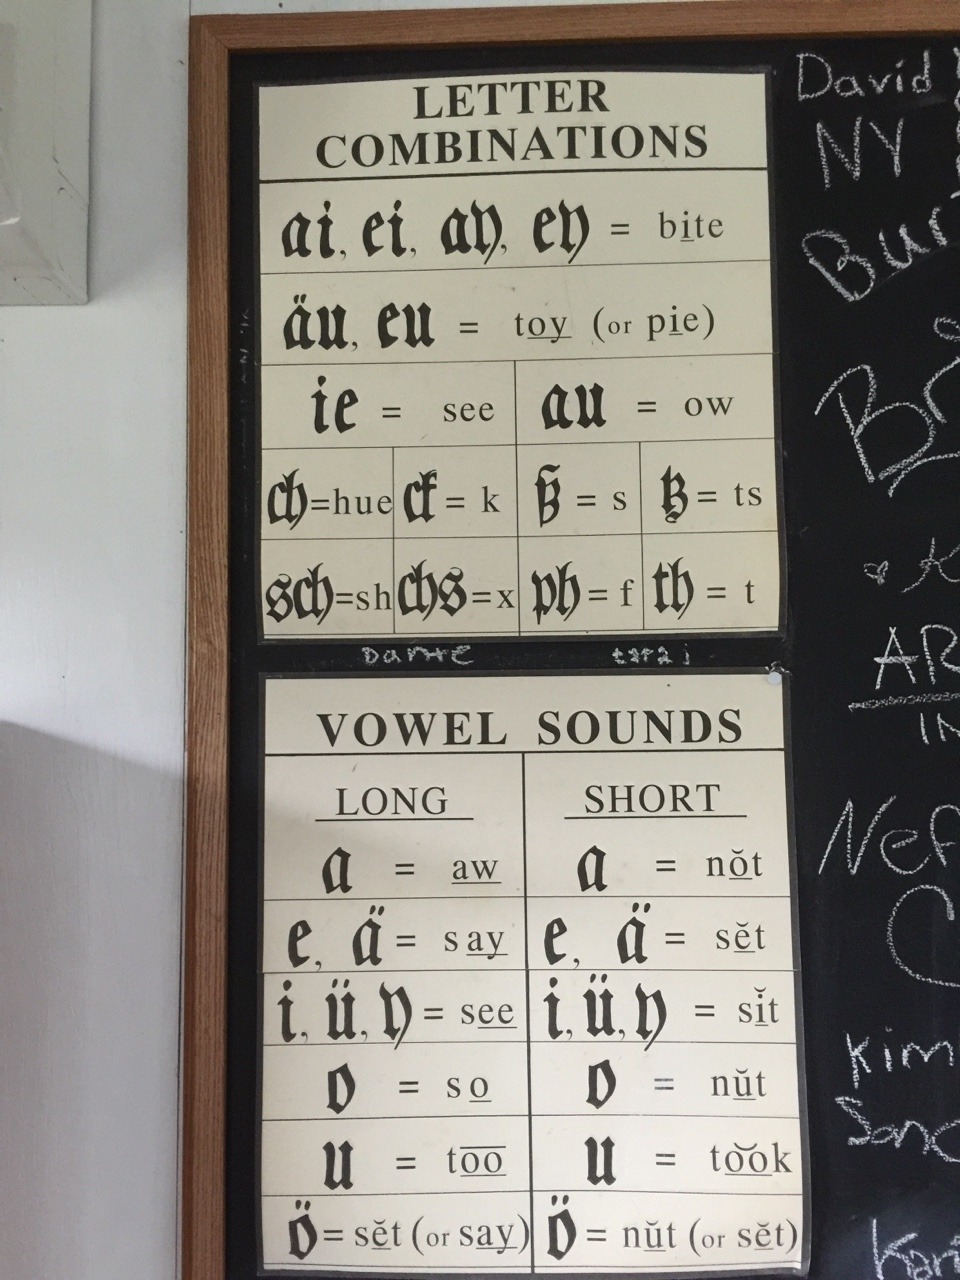 LETTER
COMBINATIONS
ai, ei, ay, ey = bite
äu, eu = toy (or pie)
ie = see
au = ow
ch=hue
ck = k
ß = s
tz = ts
sch=sh
chs=x
ph = f
th = t
Dante
VOWEL SOUNDS
LONG
SHORT
a = aw
a = nŏt
e, ä = say
e, ä = sĕt
i, ü, y = see
i, ü, y = sĭt
o = so
o = nŭt
u = too
u = to͝ok
ö = sĕt (or say)
ö = nŭt (or sĕt)
David
NY
AR
IN
Nef
Kim